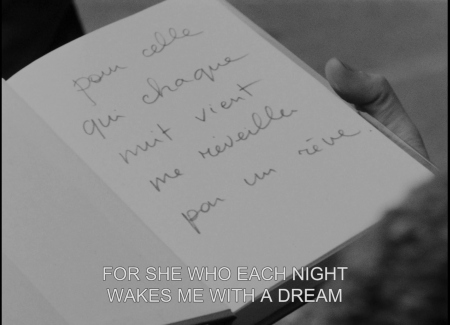 pour celle
qui chaque
nuit vient
me réveiller
par un rêve.
FOR SHE WHO EACH NIGHT
WAKES ME WITH A DREAM